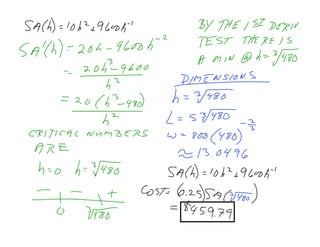 SA(h) = 10h² + 9600h⁻¹
SA'(h) = 20h - 9600h⁻²
= 20h³ - 9600
h²
= 20(h³ - 480)
h²
CRITICAL NUMBERS
ARE
h=0 h = ∛480
— — +
0 ∛480
BY THE 1ST DERIV.
TEST THERE IS
A MIN @ h = ∛480
DIMENSIONS
h = ∛480
L = 5∛480
W = 800(480)^(-2/3)
≈ 13.0496
SA(h) = 10h² + 9600h⁻¹
COST = (0.25)SA(∛480)
= $459.79